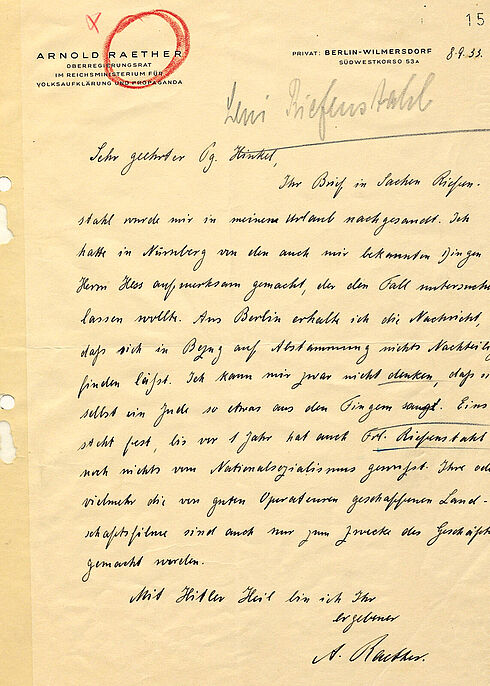 15
ARNOLD RAETHER
OBERREGIERUNGSRAT
IM REICHSMINISTERIUM FÜR
VOLKSAUFKLÄRUNG UND PROPAGANDA
PRIVAT: BERLIN-WILMERSDORF
SÜDWESTKORSO 53A
8.9.33.
Leni Riefenstahl
Sehr geehrter Pg. Hinkel,
Ihr Brief in Sachen Riefen-
stahl wurde mir in meinem Urlaub nachgesandt. Ich
hatte in Nürnberg von den auch mir bekannten Dingen
Herrn Hess aufmerksam gemacht, der den Fall untersuche
lassen wollte. Aus Berlin erhalte ich die Nachricht,
daß sich in Bezug auf Abstammung nichts Nachteilig
finden läßt. Ich kann mir zwar nicht denken, daß si
selbst ein Jude so etwas aus den Fingern saugt. Eins
steht fest, bis vor 1 Jahr hat auch Frl. Riefenstahl
noch nichts vom Nationalsozialismus gewusst. Ihre ode
vielmehr die von guten Operateuren geschaffenen Land-
schaftsfilme sind auch nur zum Zwecke des Geschäft
gemacht worden.
Mit Hitler Heil bin ich Ihr
ergebener
A. Raether.